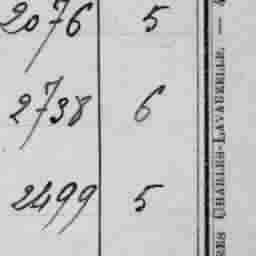 2076 5
2738 6
2499 5
RES CHARLES-LAVAUZELLE. —